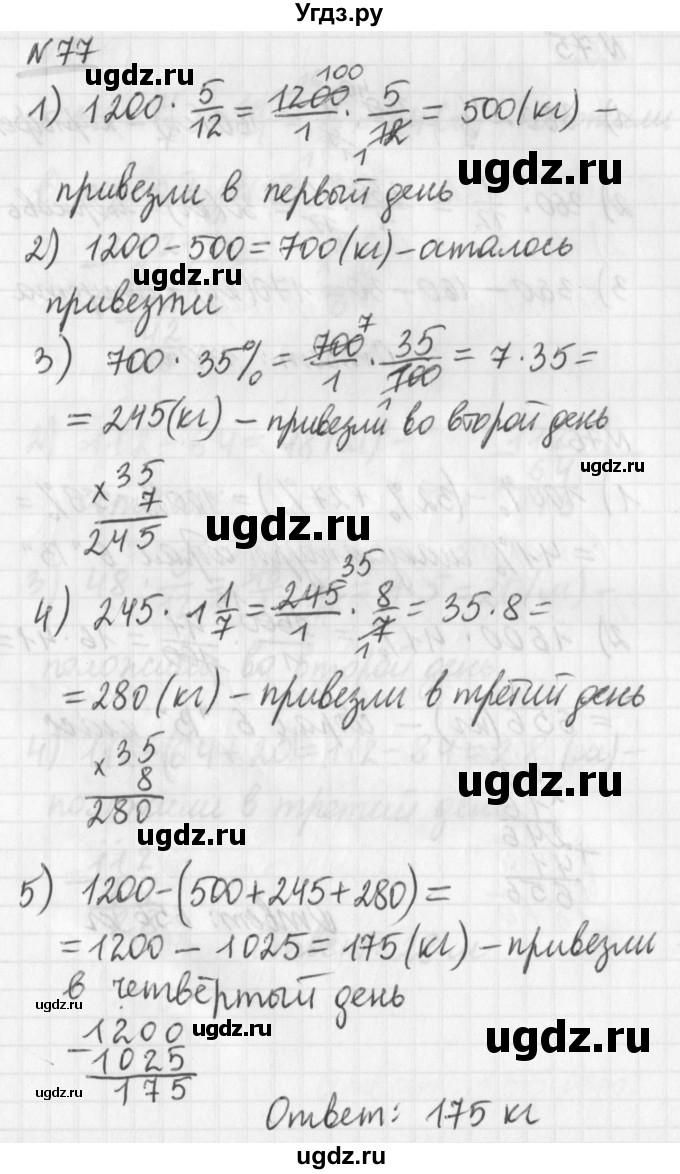 Угдз.ру
N 77
ugdz.ru
1) 1200 · 5/12 = 1200/1 · 5/12 = 500 (кг) –
100
1
ugdz.ru
привезли в первый день
2) 1200 – 500 = 700 (кг) – осталось
ugdz.ru
привезти
ugdz.ru
3) 700 · 35% = 700/1 · 35/100 = 7 · 35 =
7
1
= 245 (кг) – привезли во второй день
ugdz.ru
× 35
7
245
ugdz.ru
4) 245 · 1 1/7 = 245/1 · 8/7 = 35 · 8 =
35
1
= 280 (кг) – привезли в третий день
× 35
8
280
ugdz.ru
ugdz.ru
5) 1200 – (500 + 245 + 280) =
= 1200 – 1025 = 175 (кг) – привезли
в четвёртый день
ugdz.ru
– 1200
1025
175
ugdz.ru
ugdz.ru
ugdz.ru
Ответ: 175 кг
ugdz.ru